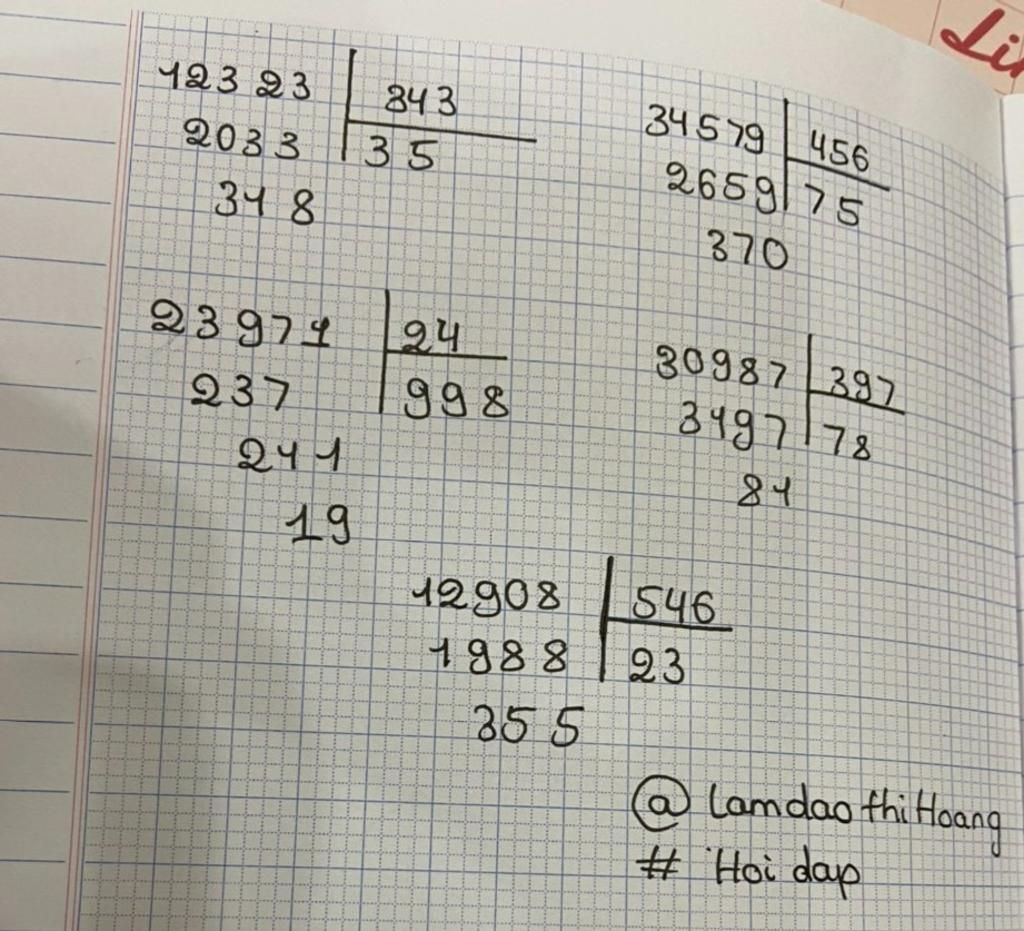 12323 343
2033 35
318
34579 456
2659 75
370
23971 24
237 998
211
19
30987 397
3197 78
81
12908 546
1988 23
355
@ lamdaothiHoang
# Hoi dap